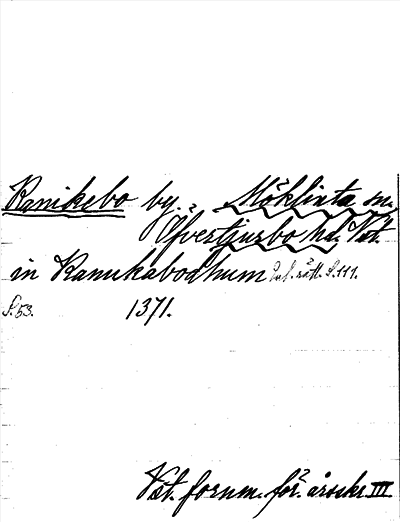 Ranikebo by. Möklinta sn.
Öfvertjurbo hd. Vst.
in Ranukabodhum Jul. rätt. S. 111.
S. 53. 1371.
Vst. fornm. för. årsskr III